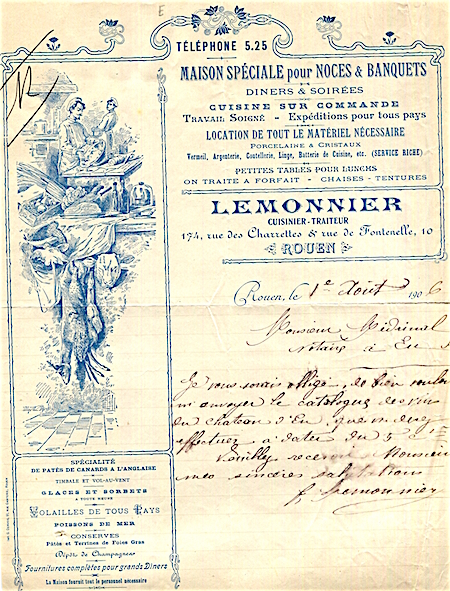 E
TÉLÉPHONE 5.25
MAISON SPÉCIALE pour NOCES & BANQUETS
DINERS & SOIRÉES
CUISINE SUR COMMANDE
TRAVAIL SOIGNÉ - Expéditions pour tous pays
LOCATION DE TOUT LE MATÉRIEL NÉCESSAIRE
PORCELAINE & CRISTAUX
Vermeil, Argenterie, Coutellerie, Linge, Batterie de Cuisine, etc. (SERVICE RICHE)
PETITES TABLES POUR LUNCHS
ON TRAITE A FORFAIT - CHAISES - TENTURES
LEMONNIER
CUISINIER-TRAITEUR
174, rue des Charrettes & rue de Fontenelle, 10
ROUEN
Rouen, le 1e Août 1906
Monsieur
notaire à Eu
Je vous serais obligé, de bien vouloir
m'envoyer le catalogue des vins
du château d'Eu, que vous devez
effectuer à dater du 5
Veuillez recevoir Monsieur
mes sincères salutations
Lemonnier
SPÉCIALITÉ
DE PATÉS DE CANARDS A L'ANGLAISE
TIMBALE ET VOL-AU-VENT
GLACES ET SORBETS
A TOUTE HEURE
VOLAILLES DE TOUS PAYS
POISSONS DE MER
CONSERVES
Pâtés et Terrines de Foies Gras
Dépôt de Champagnes
Fournitures complètes pour grands Diners
La Maison fournit tout le personnel nécessaire